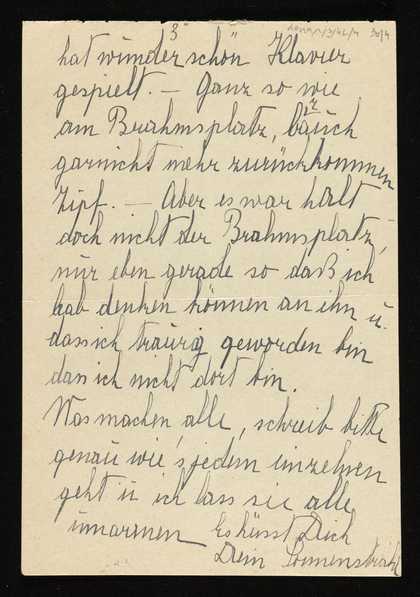 3
30/4
hat wunderschön Klavier
gespielt. – Ganz so wie
am Brahmsplatz,
garnicht mehr zurückkommen
Zipf. – Aber es war halt
doch nicht der Brahmsplatz,
nur eben gerade so daß ich
hab denken können an ihn u.
dass ich traurig geworden bin
dan ich nicht dort bin.
Was machen alle, schreib bitte
genau wie's jedem einzelnen
geht u ich lass sie alle
umarmen Es küsst Dich
Dein Sonnenstrahl